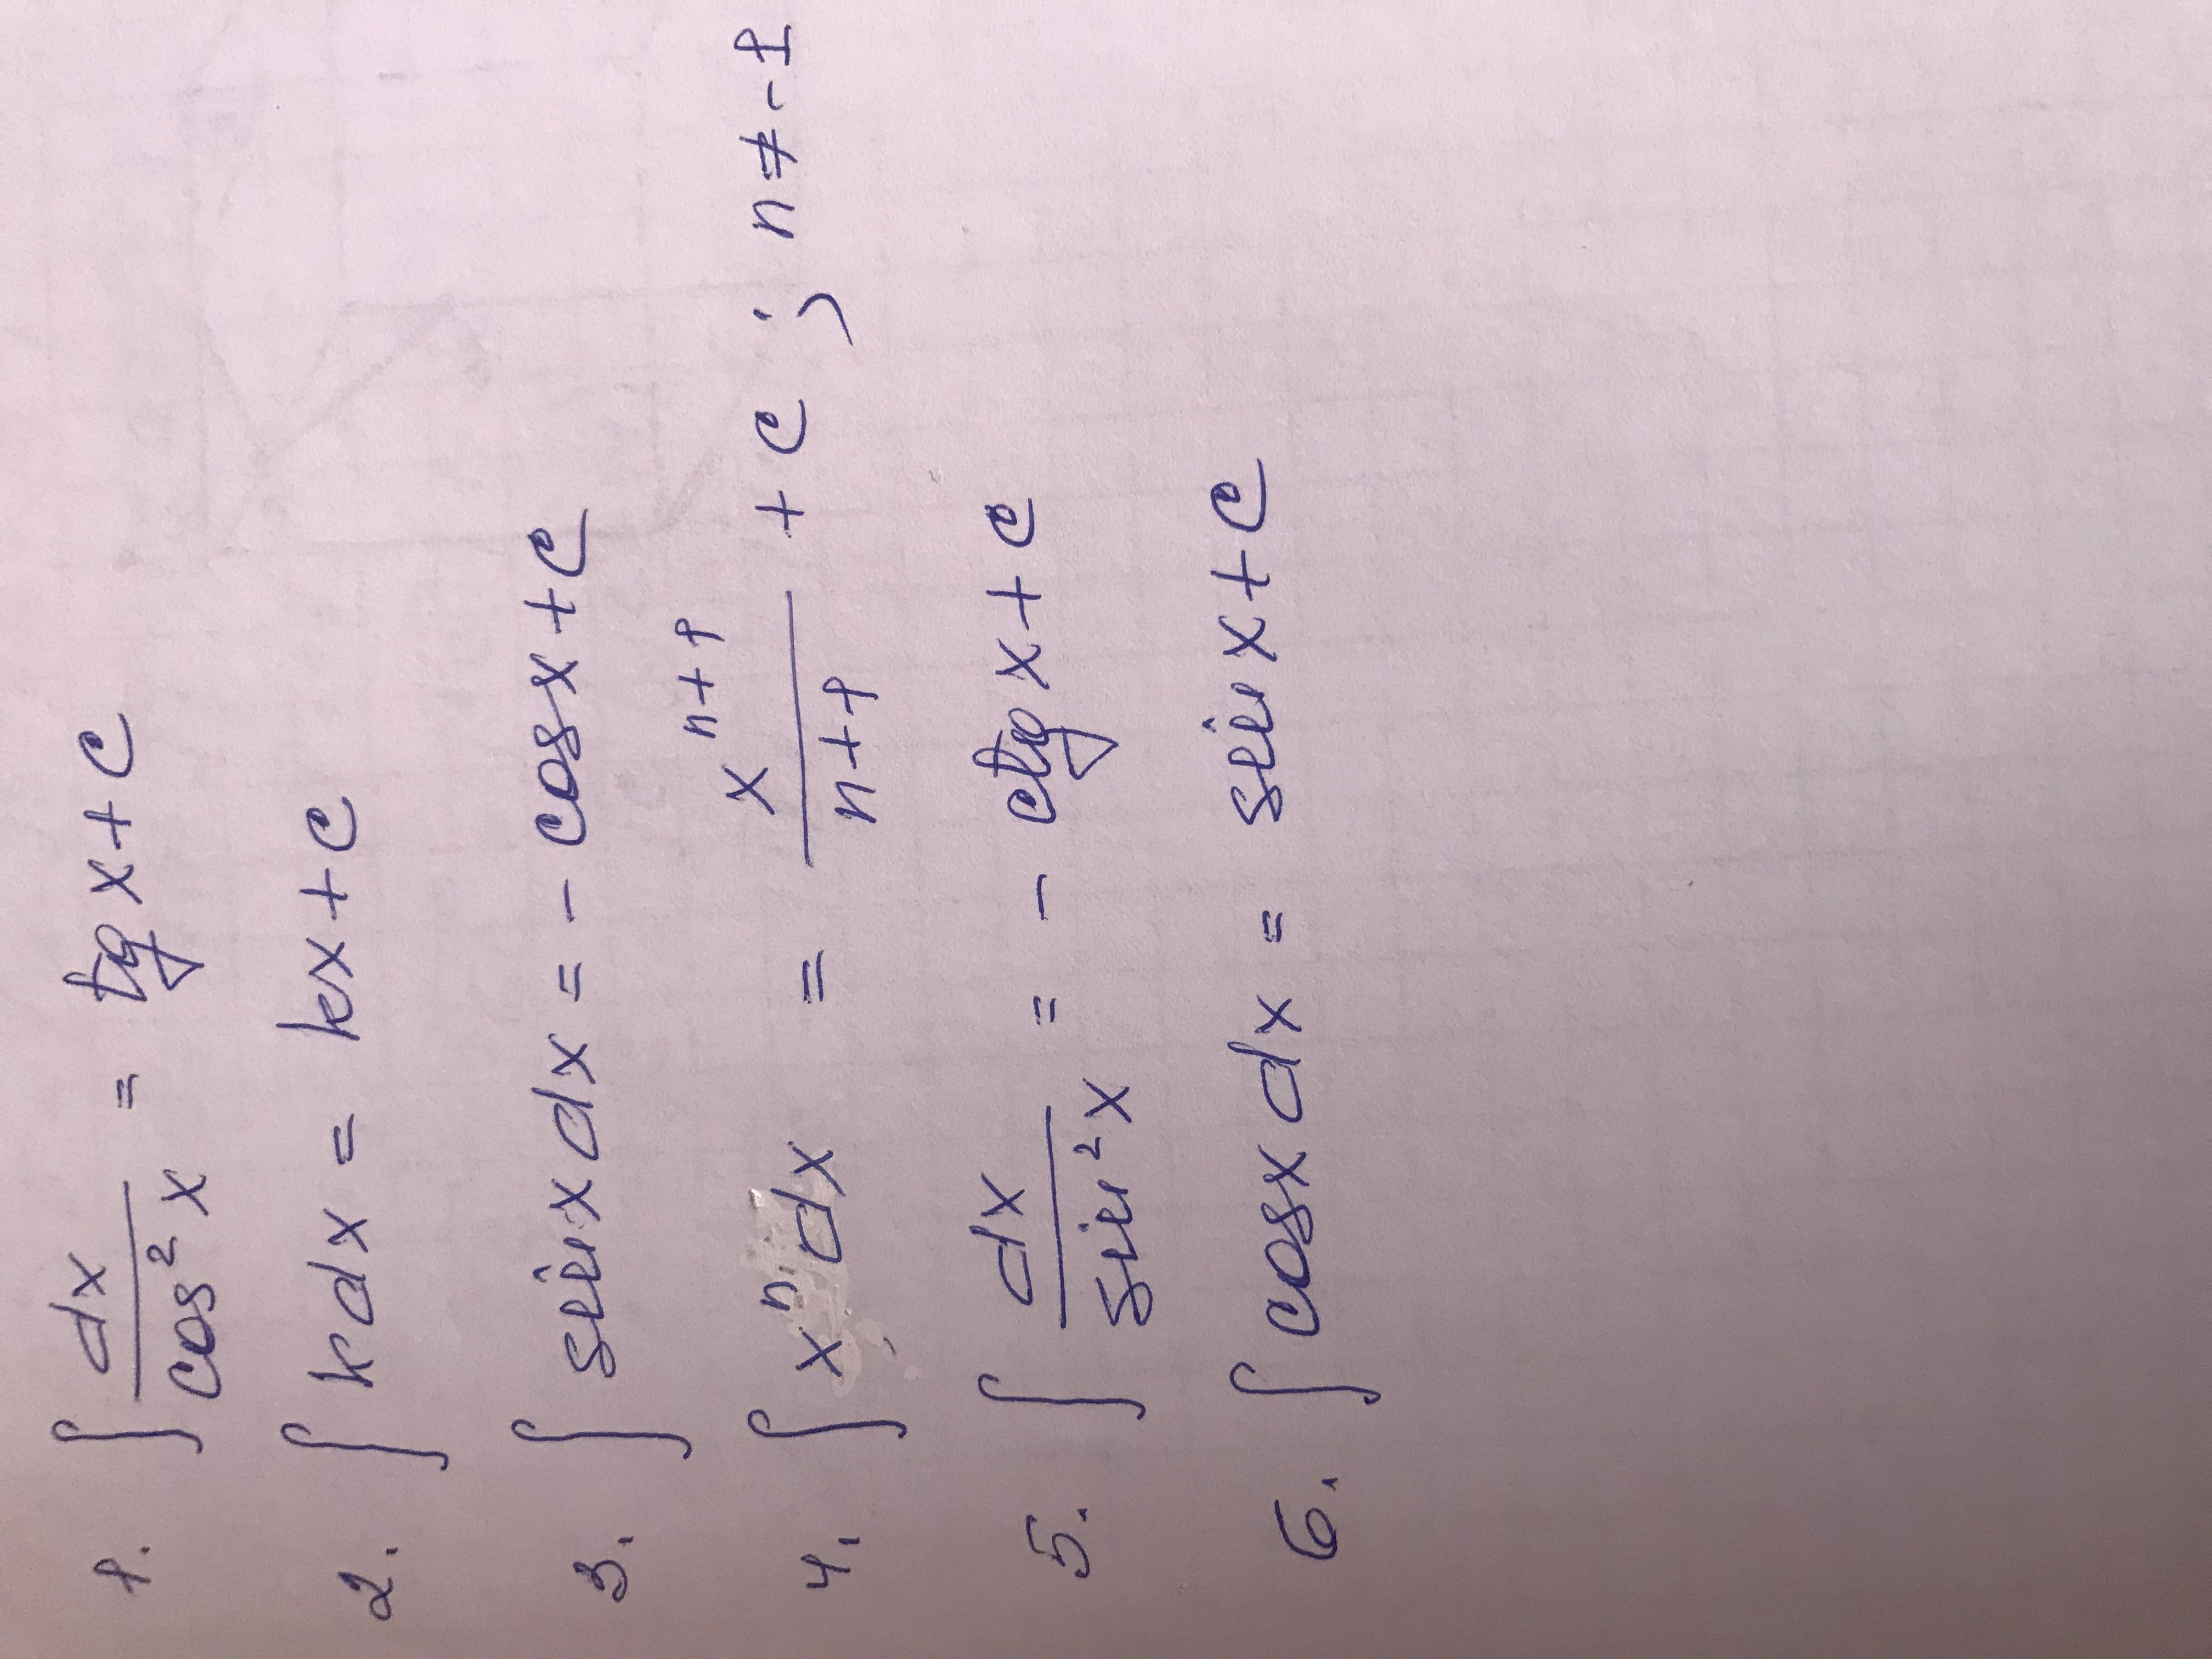 1. ∫ dx/cos²x = tg x + c
2. ∫ k dx = kx + c
3. ∫ sin x dx = - cos x + c
4. ∫ xⁿ dx = xⁿ⁺¹/n+1 + c ; n ≠ -1
5. ∫ dx/sin²x = - ctg x + c
6. ∫ cos x dx = sin x + c